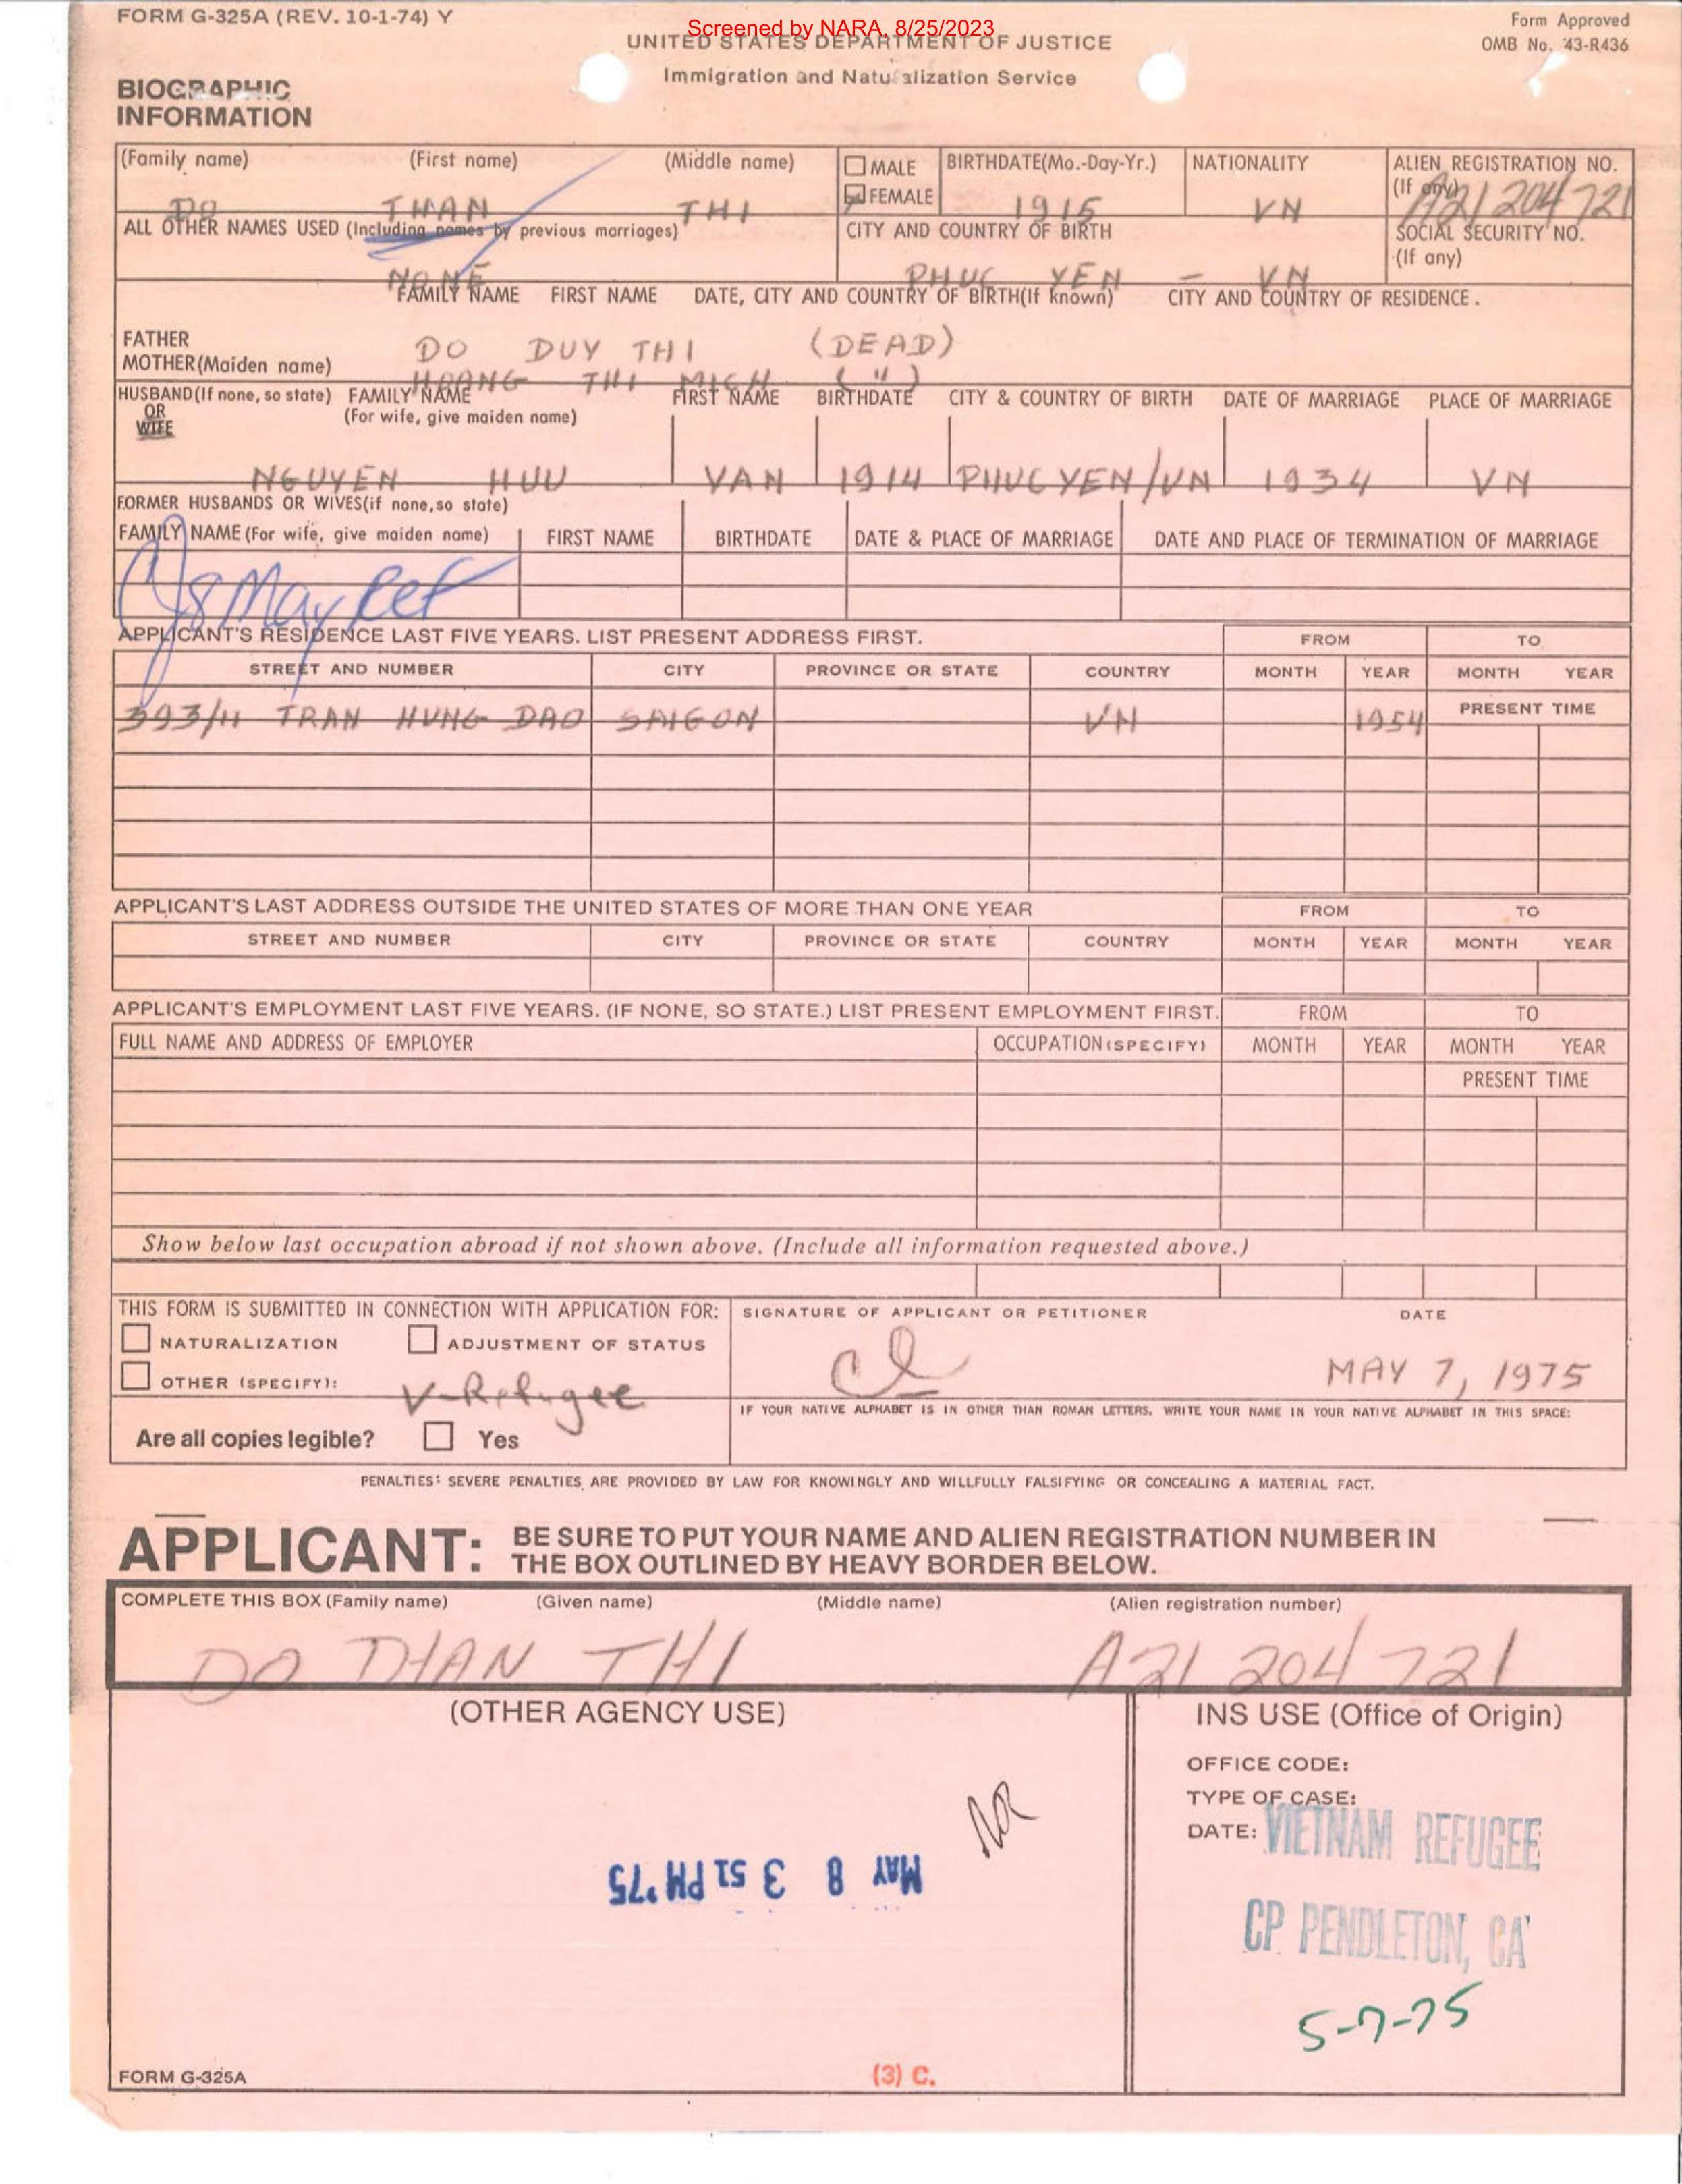 FORM G-325A (REV. 10-1-74) Y
Screened by NARA, 8/25/2023
Form Approved
OMB No. 43-R436
UNITED STATES DEPARTMENT OF JUSTICE
Immigration and Naturalization Service
BIOGRAPHIC
INFORMATION
(Family name) (First name) (Middle name) MALE BIRTHDATE(Mo.-Day-Yr.) NATIONALITY ALIEN REGISTRATION NO.
FEMALE (If any)
DO THAN THI 1915 VN A21 204 721
ALL OTHER NAMES USED (Including names by previous marriages) CITY AND COUNTRY OF BIRTH SOCIAL SECURITY NO.
(If any)
NONE PHUC YEN - VN
FAMILY NAME FIRST NAME DATE, CITY AND COUNTRY OF BIRTH(If known) CITY AND COUNTRY OF RESIDENCE.
FATHER DO DUY THI (DEAD)
MOTHER(Maiden name) HOANG THI MICH (")
HUSBAND(If none, so state) FAMILY NAME FIRST NAME BIRTHDATE CITY & COUNTRY OF BIRTH DATE OF MARRIAGE PLACE OF MARRIAGE
OR (For wife, give maiden name)
WIFE
NGUYEN HUU VAN 1914 PHUC YEN/VN 1934 VN
FORMER HUSBANDS OR WIVES(if none,so state)
FAMILY NAME (For wife, give maiden name) FIRST NAME BIRTHDATE DATE & PLACE OF MARRIAGE DATE AND PLACE OF TERMINATION OF MARRIAGE
8 May Ref
APPLICANT'S RESIDENCE LAST FIVE YEARS. LIST PRESENT ADDRESS FIRST. FROM TO
STREET AND NUMBER CITY PROVINCE OR STATE COUNTRY MONTH YEAR MONTH YEAR
393/11 TRAN HUNG DAO SAIGON VN 1954 PRESENT TIME
APPLICANT'S LAST ADDRESS OUTSIDE THE UNITED STATES OF MORE THAN ONE YEAR FROM TO
STREET AND NUMBER CITY PROVINCE OR STATE COUNTRY MONTH YEAR MONTH YEAR
APPLICANT'S EMPLOYMENT LAST FIVE YEARS. (IF NONE, SO STATE.) LIST PRESENT EMPLOYMENT FIRST. FROM TO
FULL NAME AND ADDRESS OF EMPLOYER OCCUPATION (SPECIFY) MONTH YEAR MONTH YEAR
PRESENT TIME
Show below last occupation abroad if not shown above. (Include all information requested above.)
THIS FORM IS SUBMITTED IN CONNECTION WITH APPLICATION FOR: SIGNATURE OF APPLICANT OR PETITIONER DATE
NATURALIZATION ADJUSTMENT OF STATUS
OTHER (SPECIFY): V-Refugee MAY 7, 1975
IF YOUR NATIVE ALPHABET IS IN OTHER THAN ROMAN LETTERS, WRITE YOUR NAME IN YOUR NATIVE ALPHABET IN THIS SPACE:
Are all copies legible? Yes
PENALTIES: SEVERE PENALTIES ARE PROVIDED BY LAW FOR KNOWINGLY AND WILLFULLY FALSIFYING OR CONCEALING A MATERIAL FACT.
APPLICANT: BE SURE TO PUT YOUR NAME AND ALIEN REGISTRATION NUMBER IN
THE BOX OUTLINED BY HEAVY BORDER BELOW.
COMPLETE THIS BOX (Family name) (Given name) (Middle name) (Alien registration number)
DO THAN THI A21 204 721
(OTHER AGENCY USE) INS USE (Office of Origin)
OFFICE CODE:
TYPE OF CASE:
DATE: VIETNAM REFUGEE
NR
MAY 8 3 51 PM '75
CP PENDLETON, CA
5-7-75
FORM G-325A (3) C.